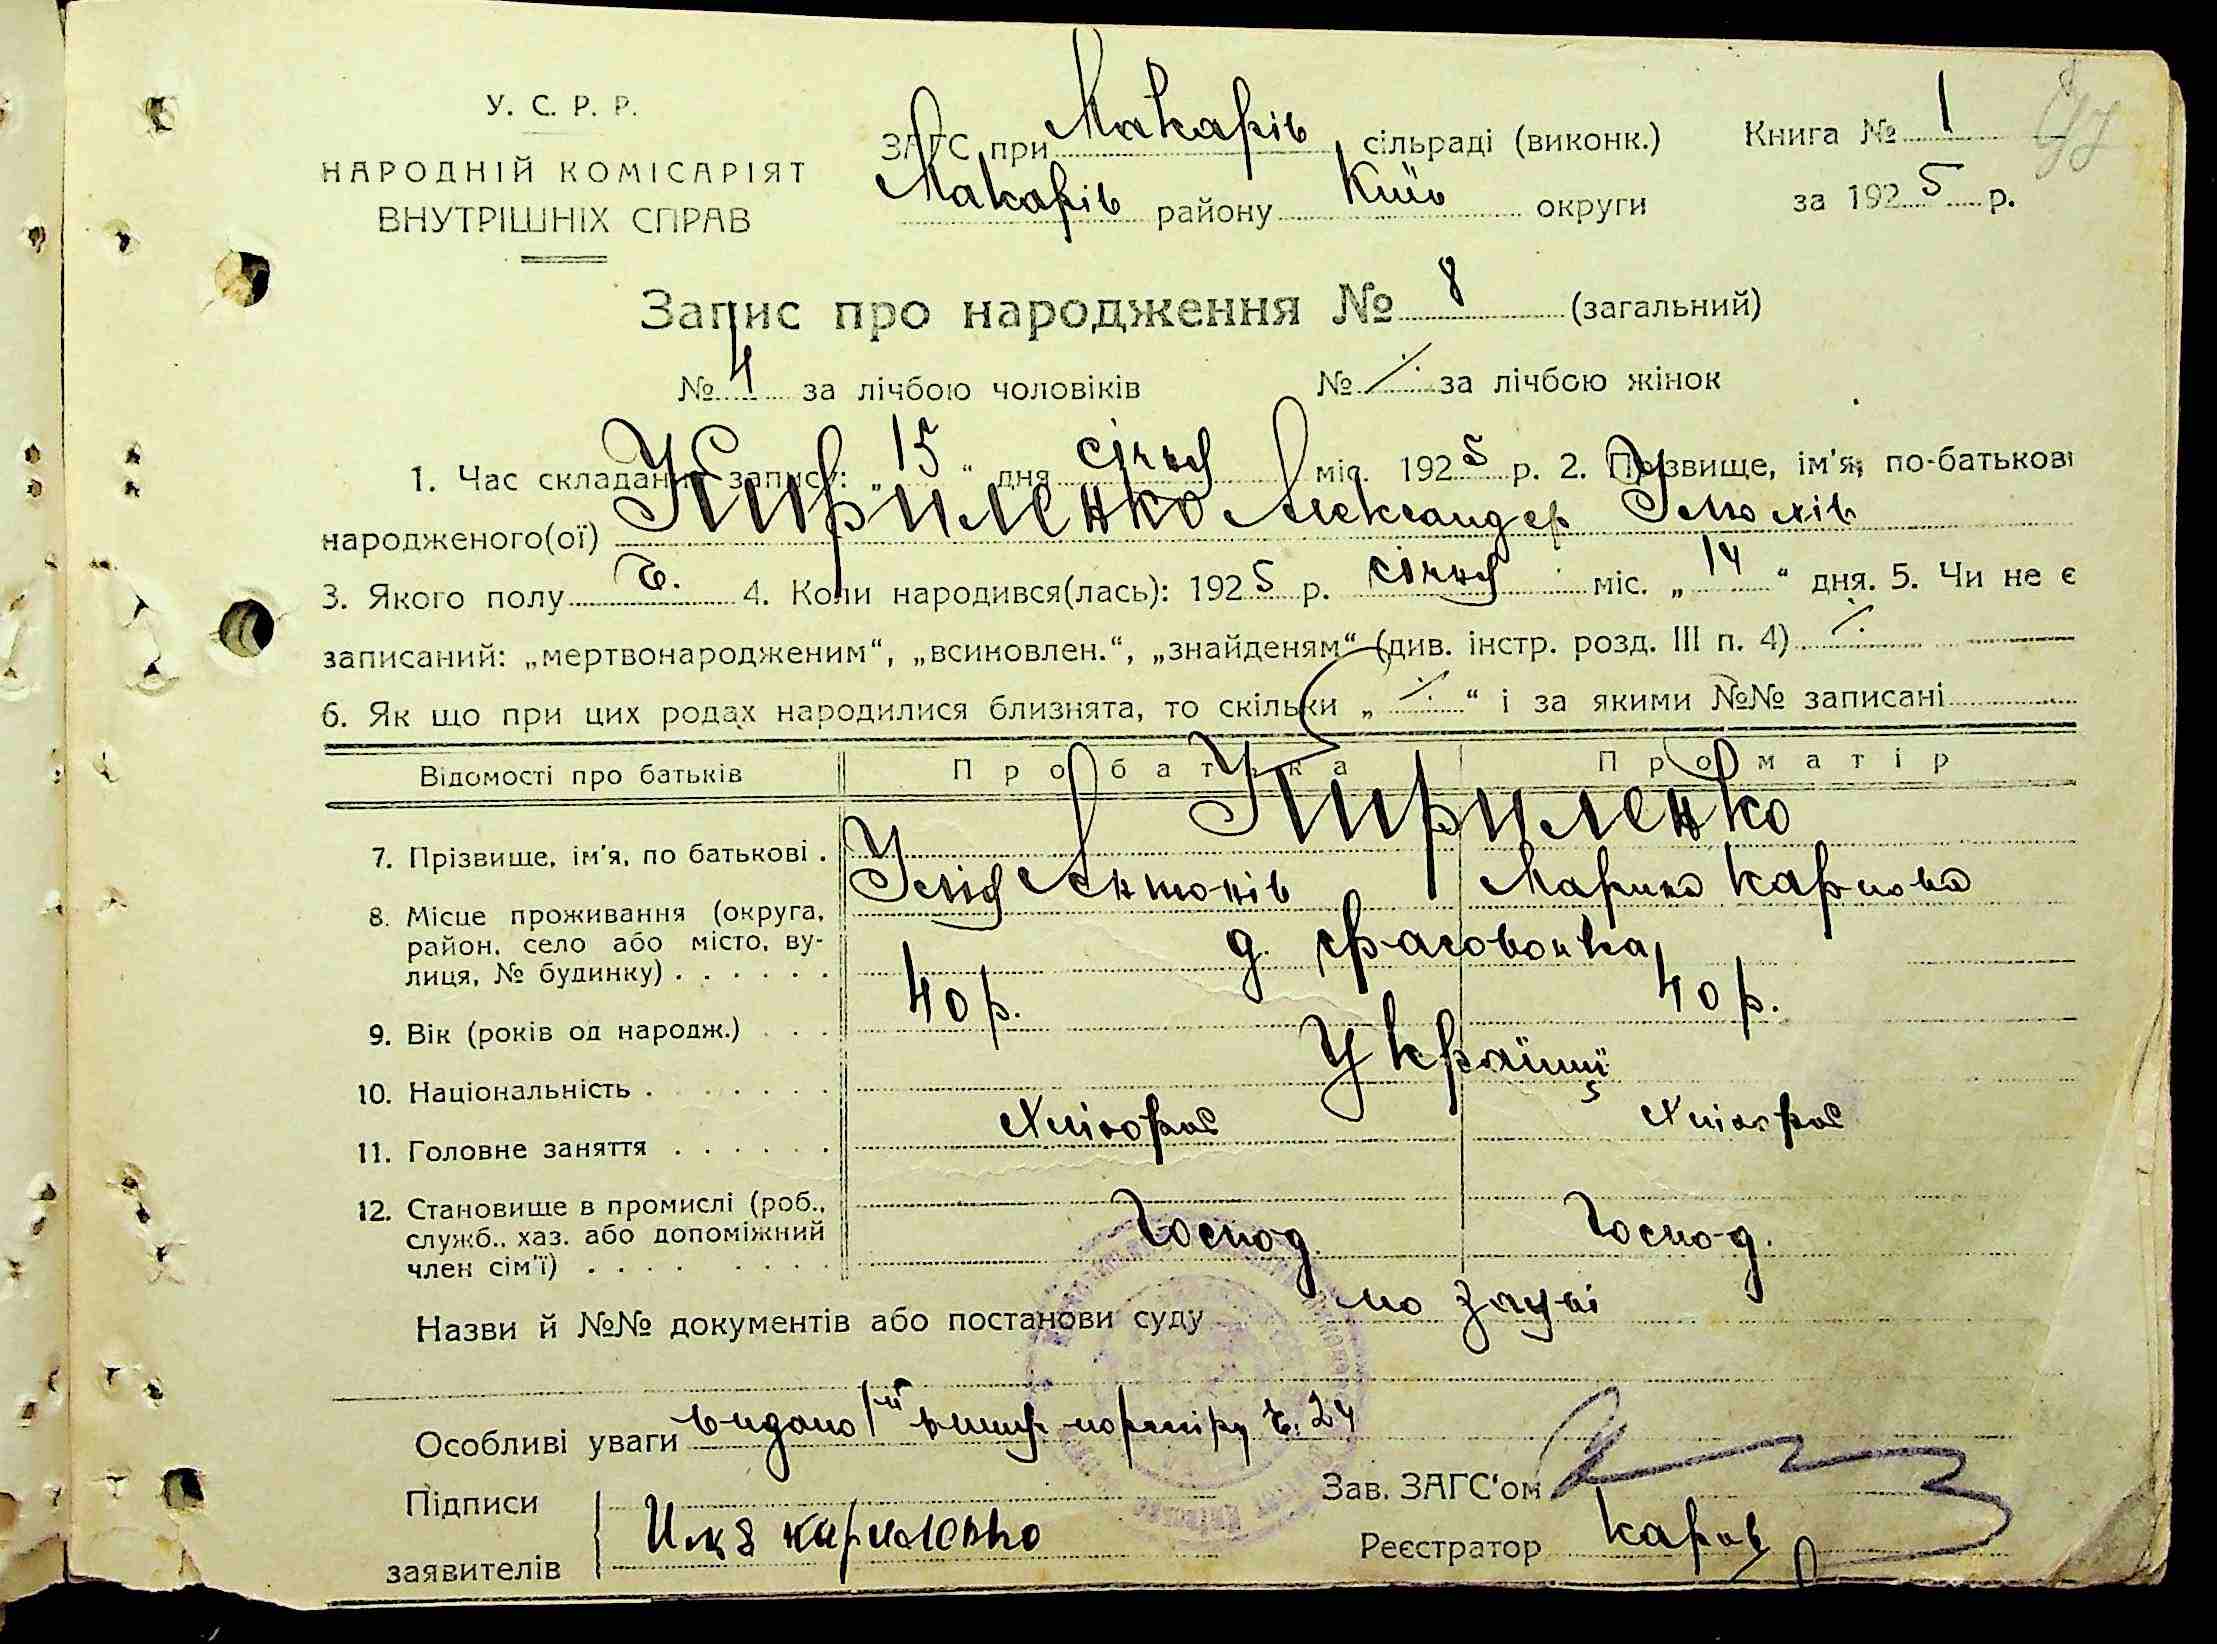 У. С. Р. Р.
НАРОДНІЙ КОМІСАРІЯТ
ВНУТРІШНІХ СПРАВ
ЗАГС при Макарів сільраді (виконк.) Книга № 1
Макарів району Київ округи за 1925 р.
Запис про народження № 8 (загальний)
№ 4 за лічбою чоловіків № ⁒ за лічбою жінок
1. Час складання запису: „ 15 “ дня січня міс. 1925 р. 2. Прізвище, ім'я, по-батькові
народженого(ої) Кириленко Александер Ілюхів
3. Якого полу ч. 4. Коли народився(лась): 1925 р. січня міс. „ 14 “ дня. 5. Чи не є
записаний: „мертвонародженим“, „всиновлен.“, „знайденям“ (див. інстр. розд. III п. 4) ⁒
6. Як що при цих родах народилися близнята, то скільки „ ⁒ “ і за якими №№ записані
Відомості про батьків Про батька Про матір
Кириленко
7. Прізвище, ім'я, по батькові . Ілія Антонів Марина Карпова
8. Місце проживання (округа,
район, село або місто, ву-
лиця, № будинку) . . . . . . д. Фасовочка
9. Вік (років од народж.) . . . 40 р. 40 р.
10. Національність . . . . . . . Україньці
11. Головне заняття . . . . . . Хлібороб Хлібороб
12. Становище в промислі (роб.,
служб., хаз. або допоміжний
член сім'ї) . . . . . . . . . Господ. Господ.
Назви й №№ документів або постанови суду по заяві
Особливі уваги видано ч. 24
Підписи Зав. ЗАГС'ом
заявителів Илія кириленко Реєстратор